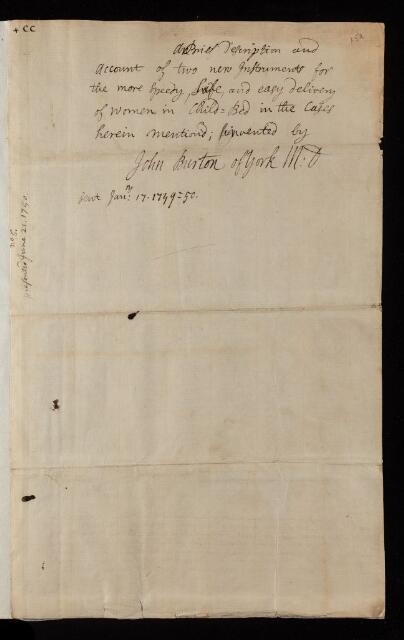 + CC
A Brief Description and
account of two new Instruments for
the more speedy, Safe, and easy delivery
of women in Child=Bed in the Cases
herein mentiond; Invented by
John Burton of York M: D
Janry 17. 1749=50.
presented June 21. 1750.